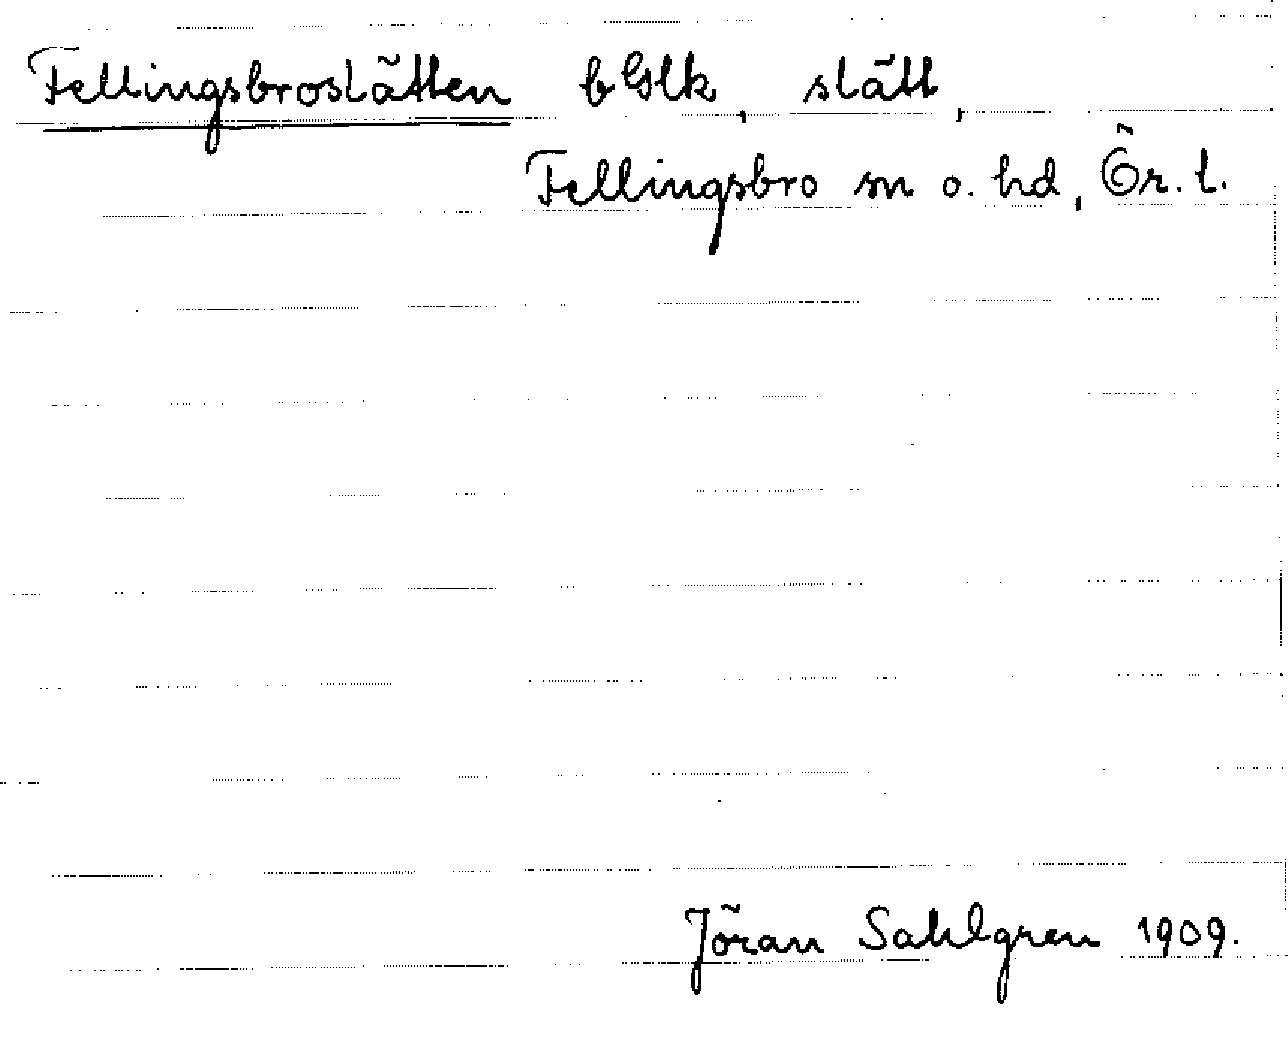 Fellingsbroslätten slätt,
Fellingsbro sn o. hd, Ör. l.
Jöran Sahlgren 1909.